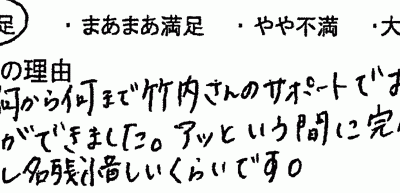 足 ・まあまあ満足 ・やや不満 ・大
の理由
何から何まで竹内さんのサポートでお
ができました。アッという間に完
し名残惜しいくらいです。